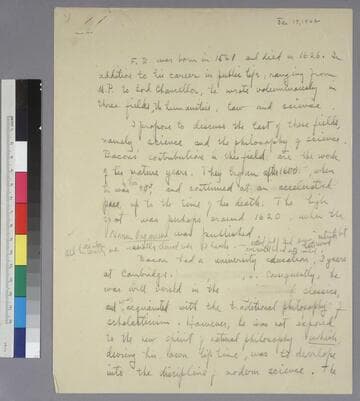 Dec 17, 1942
F. B. was born in 1561 and died in 1626. In
addition to his career in public life, ranging from
M.P. to Lord Chancellor, he wrote voluminously in
three fields, the humanities, law and science.
I propose to discuss the last of these fields,
namely, science and the philosophy of science.
Bacon's contributions in this field are the work
of his mature years. They began after 1600, when
he was 40, and continued at an accelerated
pace, up to the time of his death. The high
spot was perhaps around 1620, when the
Novum Organum was published
Bacon had a university education, 3 years
at Cambridge. Consequently, he
was well versed in the classics,
and acquainted with the traditional philosophy of
scholasticism. However, he was not exposed
to the new spirit of natural philosophy which,
during his own life time, was to develope
into the discipline of modern science. He